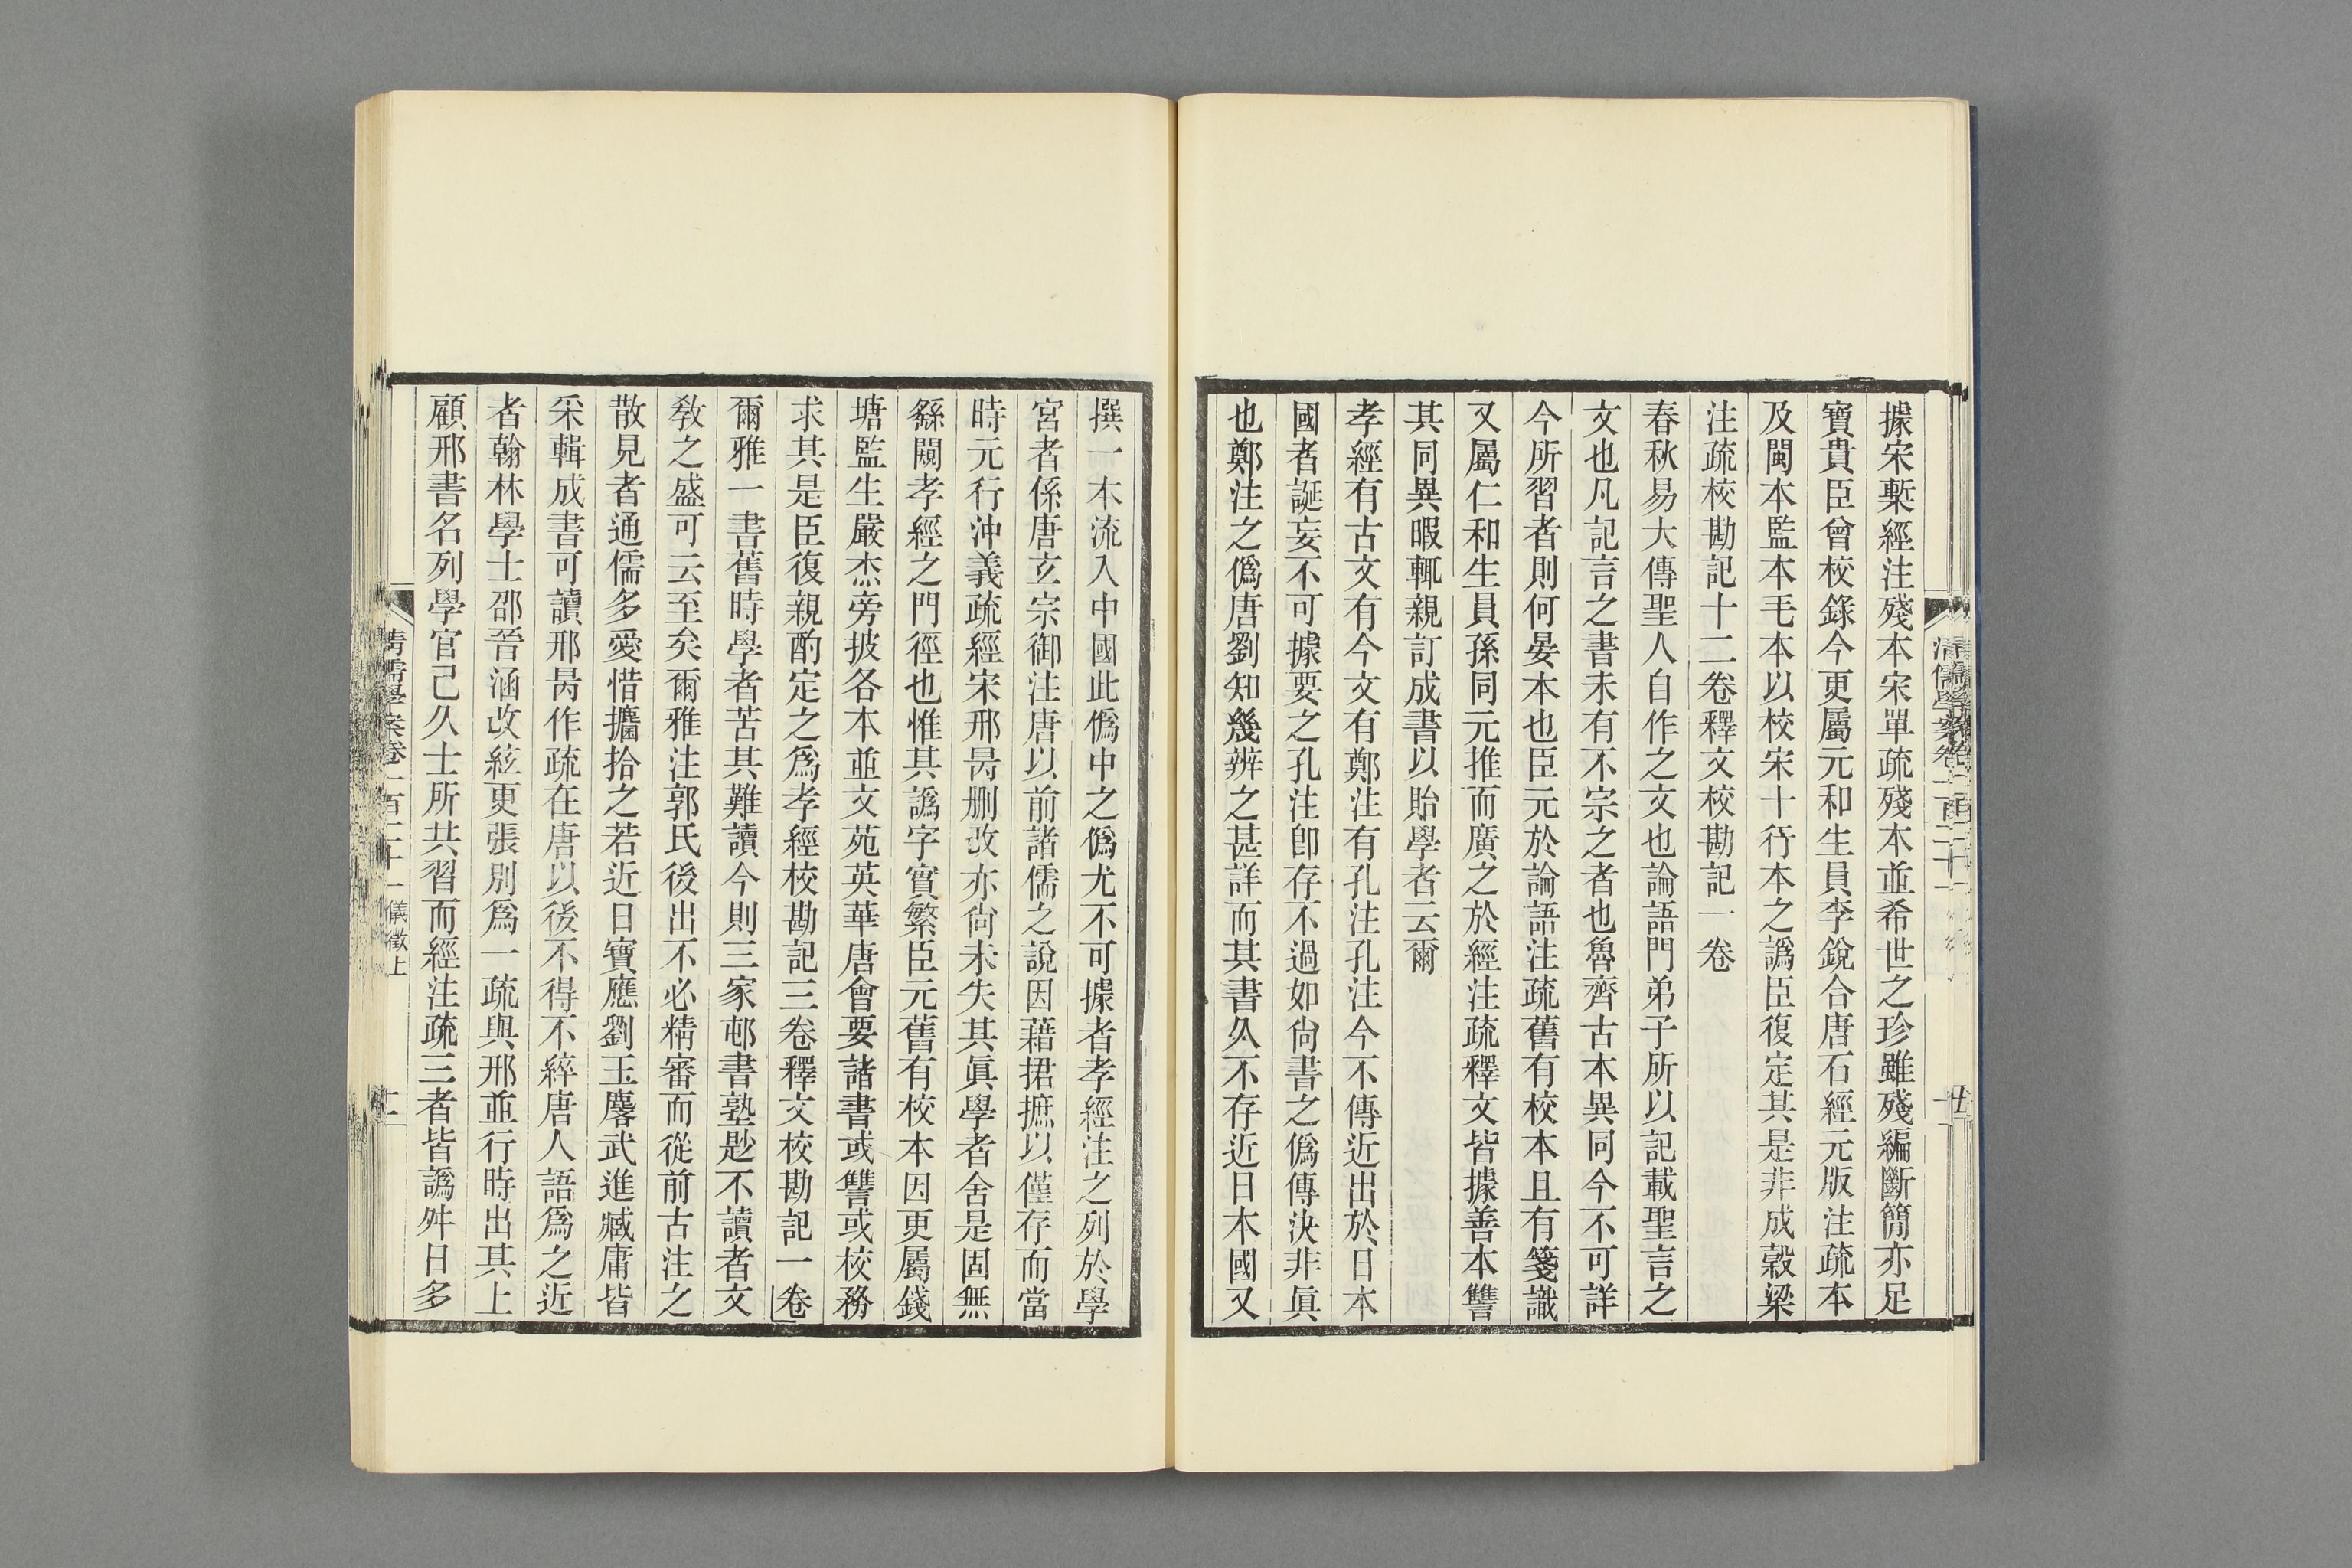 據宋槧經注殘本宋單疏殘本並希世之珍雖殘編斷簡亦足
寶貴臣曾校錄今更屬元和生員李銳合唐石經元版注疏本
及閩本監本毛本以校宋十行本之譌臣復定其是非成穀梁
注疏校勘記十二卷釋文校勘記一卷
春秋易大傳聖人自作之文也論語門弟子所以記載聖言之
文也凡記言之書未有不宗之者也魯齊古本異同今不可詳
今所習者則何晏本也臣元於論語注疏舊有校本且有箋識
又屬仁和生員孫同元推而廣之於經注疏釋文皆據善本讐
其同異暇輒親訂成書以貽學者云爾
孝經有古文有今文有鄭注有孔注孔注今不傳近出於日本
國者誕妄不可據要之孔注卽存不過如尙書之僞傳決非眞
也鄭注之僞唐劉知幾辨之甚詳而其書久不存近日本國又
撰一本流入中國此僞中之僞尤不可據者孝經注之列於學
宮者係唐玄宗御注唐以前諸儒之說因藉捃摭以僅存而當
時元行沖義疏經宋邢昺刪改亦尙未失其眞學者舍是固無
繇闚孝經之門徑也惟其譌字實繁臣元舊有校本因更屬錢
塘監生嚴杰旁披各本並文苑英華唐會要諸書或讐或校務
求其是臣復親酌定之爲孝經校勘記三卷釋文校勘記一卷
爾雅一書舊時學者苦其難讀今則三家邨書塾尟不讀者文
敎之盛可云至矣爾雅注郭氏後出不必精審而從前古注之
散見者通儒多愛惜攟拾之若近日寶應劉玉麐武進臧庸皆
采輯成書可讀邢昺作疏在唐以後不得不綷唐人語爲之近
者翰林學士邵晉涵改絃更張別爲一疏與邢並行時出其上
顧邢書名列學官己久士所共習而經注疏三者皆譌舛日多
清儒學案卷一百二十一 儀徵上